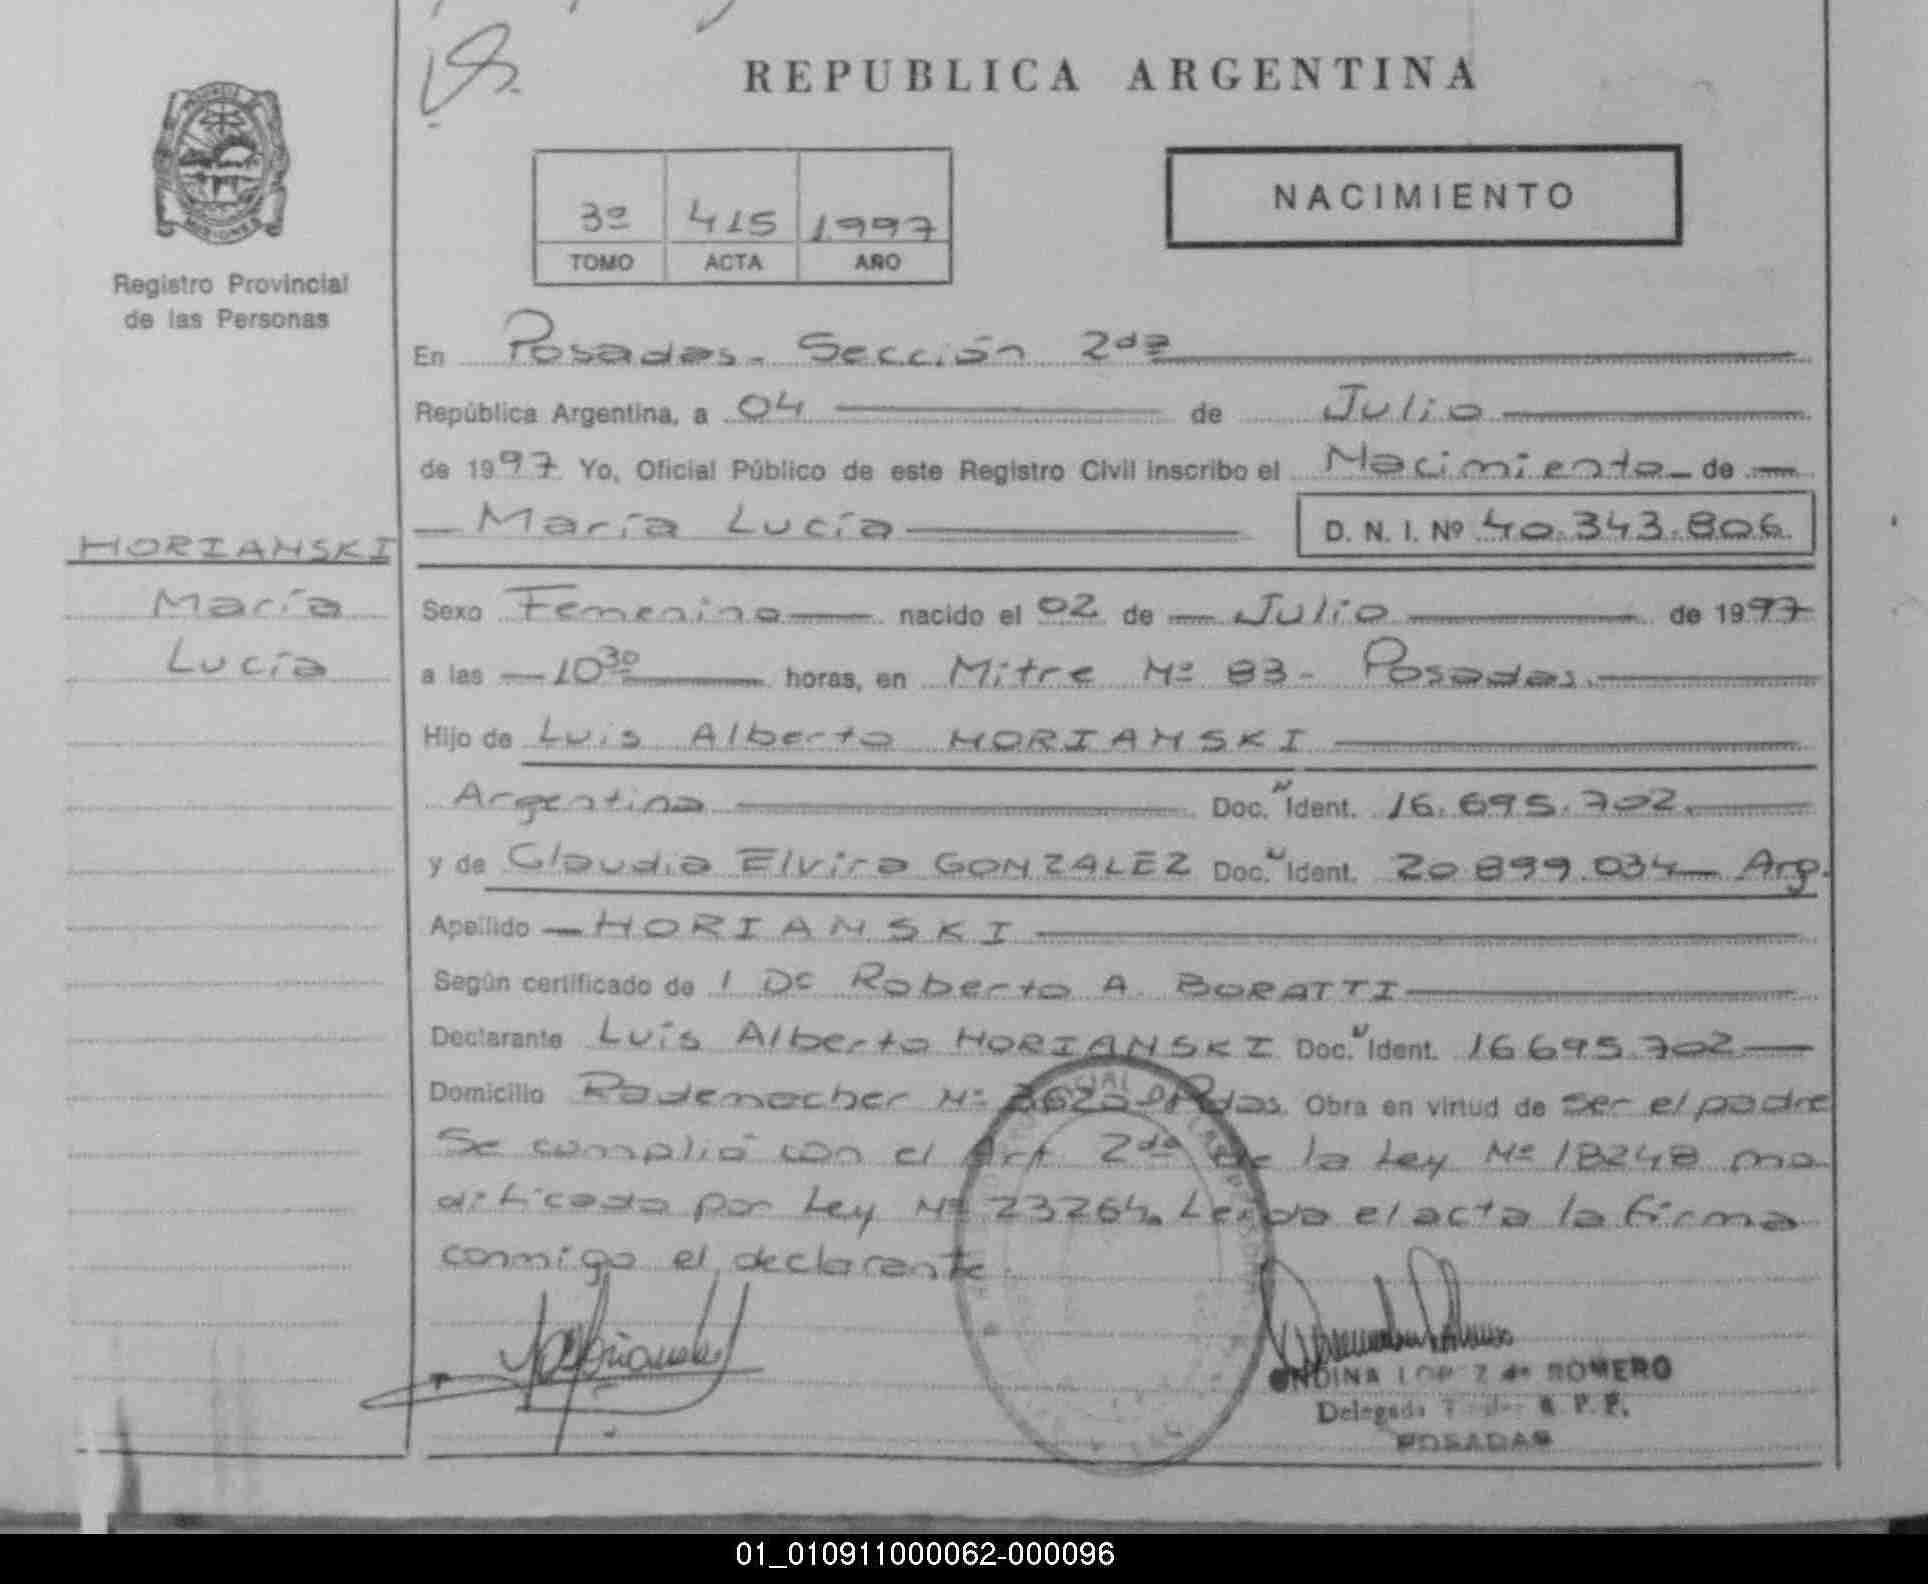 REPUBLICA ARGENTINA
NACIMIENTO
3º 415 1997
TOMO ACTA AÑO
Registro Provincial
de las Personas
En Posadas. Sección 2da
República Argentina, a 04 de Julio
de 1997 Yo, Oficial Público de este Registro Civil inscribo el Nacimiento de
María Lucía D. N. I. Nº 40.343.806.
HORIANSKI
María
Lucía
Sexo Femenino nacido el 02 de Julio de 1997
a las 10 30 horas, en Mitre Nº 83 - Posadas.
Hijo de Luis Alberto HORIANSKI
Argentino Doc. Ident. 16.695.702.
y de Claudia Elvira GONZALEZ Doc. Ident. 20.899.034 Arg.
Apellido HORIANSKI
Según certificado de l Dr Roberto A. BORATTI
Declarante Luis Alberto HORIANSKI Doc. Ident. 16.695.702
Domicilio Rademacher Nº Pdas. Obra en virtud de ser el padre
Se cumplió con el Art 2do de la Ley Nº 18248 mo
dificado por Ley Nº 23264. Leída el acta la firma
conmigo el declarante.
ONDINA LOPEZ de ROMERO
Delegada R. P. P.
POSADAS
01_010911000062-000096